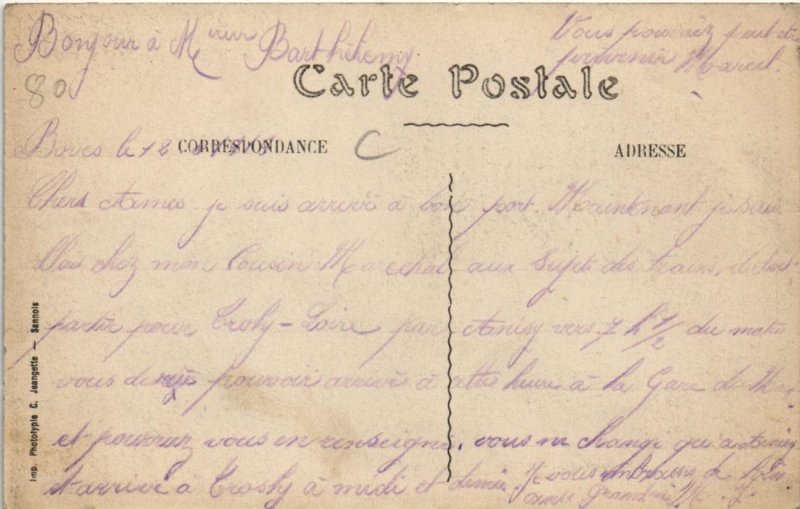 Bonjour à Mr Barthélemy
Vous pouvez peut être
prévenir Marcel.
80
Carte Postale
CORRESPONDANCE
C
ADRESSE
Boves le 12
Chers Amis je suis arrivé à bon port. Maintenant je suis
allé chez mon Cousin Maréchal aux Sujet des trains, il doit
partir pour Crohy-Loire par Anizy vers 7 h 1/2 du matin
vous pouvoir arrivé à cette heure à la Gare de
et pourrez vous en renseigné. vous ne change qu'à Anizy
et arrivé à Crosly à midi et demie. Je vous embrasse de loin
Imp. Phototypie C. Jeangette — Sannois